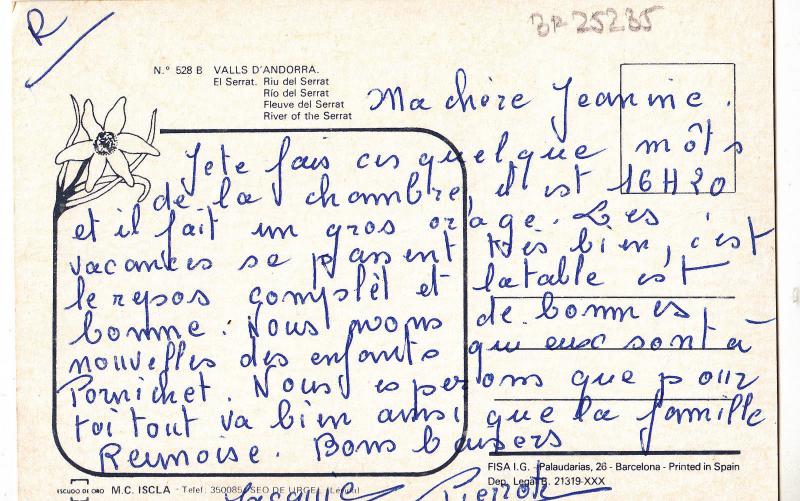 R
BR 25235
N.º 528 B VALLS D'ANDORRA.
El Serrat. Riu del Serrat
Río del Serrat
Fleuve del Serrat
River of the Serrat
Ma chère Jeanine.
Je te fais ces quelque môts
de la chambre, il est 16H20
et il fait un gros orage. Les
vacances se passent très bien, c'est
le repos complèt et la table est
bonne. Nous avons de bonnes
nouvelles des enfants qui eux sont à
Pornichet. Nous esperons que pour
toi tout va bien ainsi que la famille
Remoise. Bons baisers
Pierrot
FISA I.G. - Palaudarias, 26 - Barcelona - Printed in Spain
Dep. Legal B. 21319-XXX
ESCUDO DE ORO M.C. ISCLA - Telef. 350085 - SEO DE URGEL (Lérida)